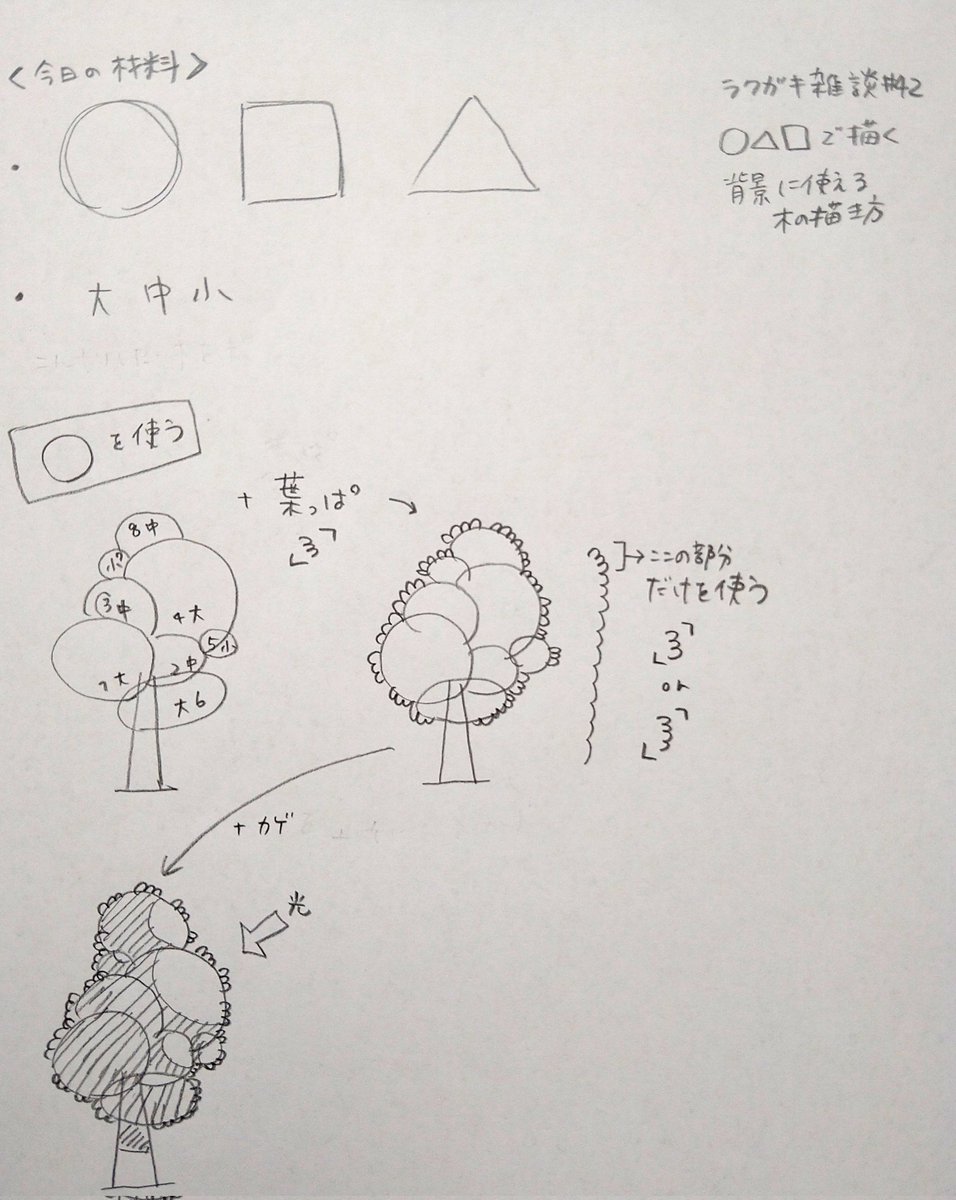 <今日の材料>
ラクガキ雑談#42
○△□で描く
背景に使える
木の描き方
・
・ 大 中 小
○を使う
+ 葉っぱ
「3」
8中
小7
③中
4大
5小
2中
1大
大6
ここの部分
だけを使う
「3」
or
「3」
+ カゲ
光